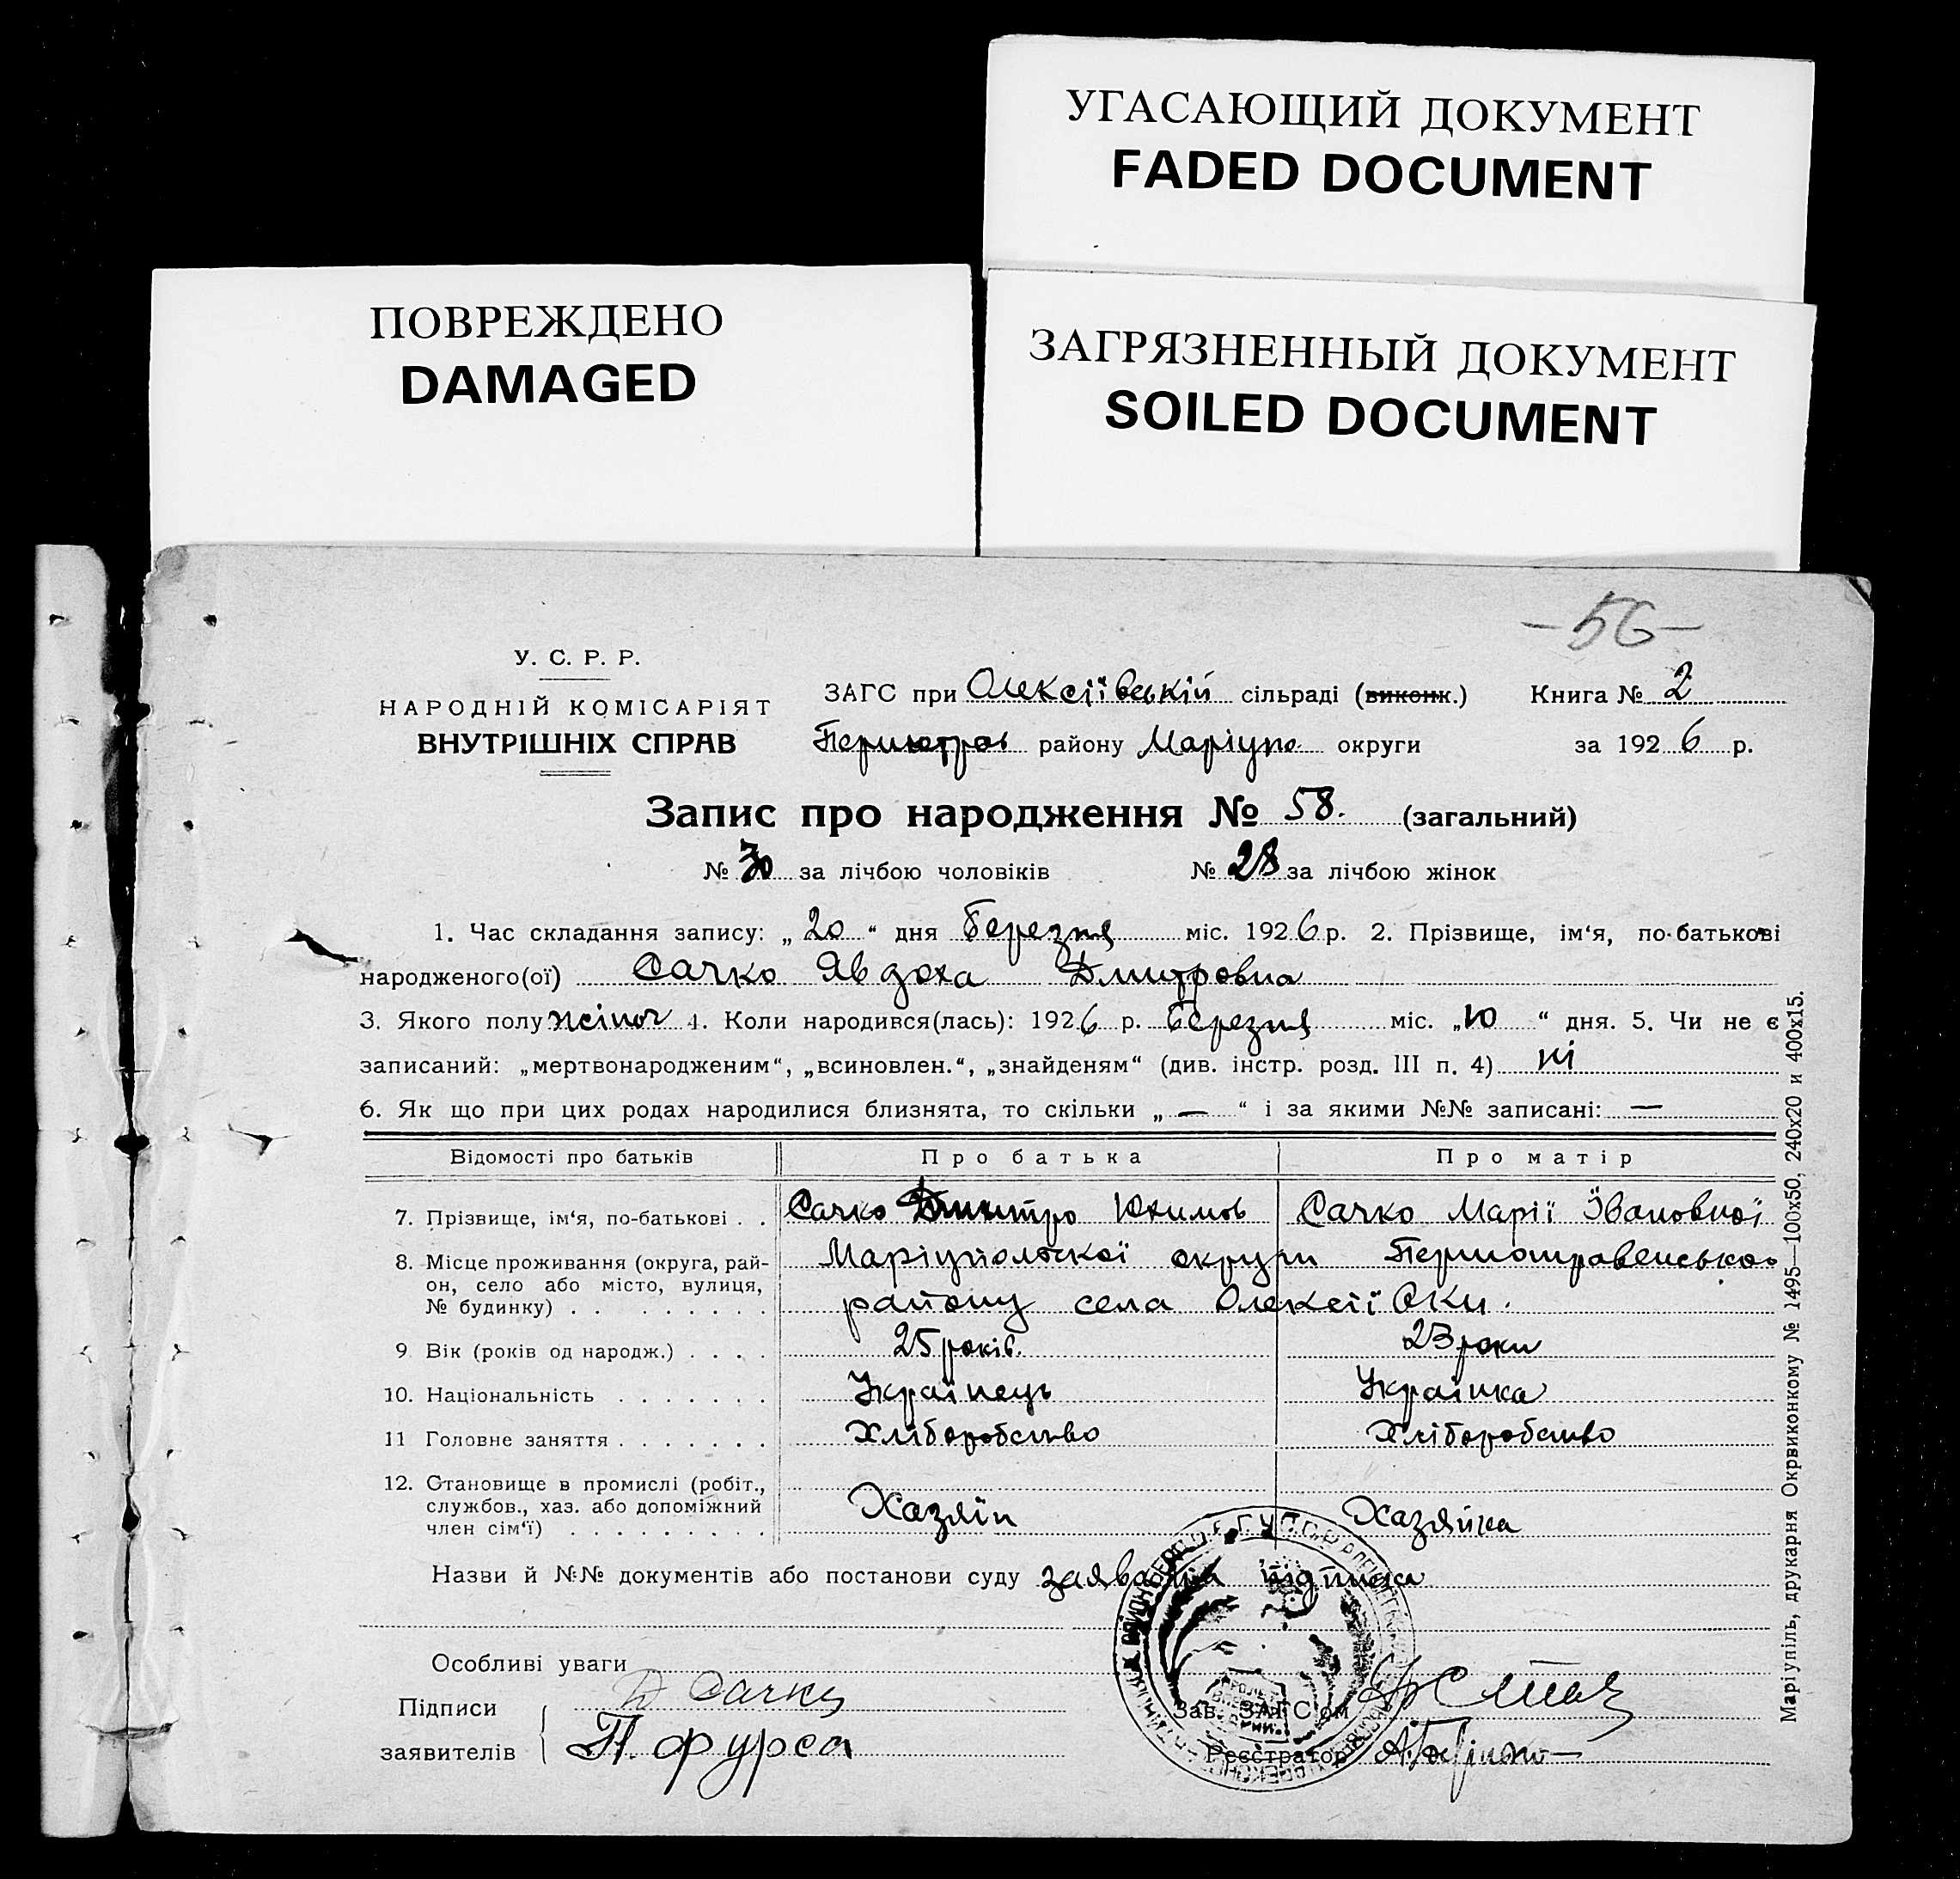 УГАСАЮЩИЙ ДОКУМЕНТ
FADED DOCUMENT
ПОВРЕЖДЕНО
DAMAGED
ЗАГРЯЗНЕННЫЙ ДОКУМЕНТ
SOILED DOCUMENT
–56–
У. С. Р. Р.
НАРОДНІЙ КОМІСАРІЯТ
ВНУТРІШНІХ СПРАВ
ЗАГС при Олексіївській сільраді (виконк.) Книга № 2
Першотров району Маріупо округи за 1926 р.
Запис про народження № 58. (загальний)
№ 30 за лічбою чоловіків № 28 за лічбою жінок
1. Час складання запису: „20“ дня березня міс. 1926 р. 2. Прізвище, ім‘я, по-батькові
народженого(ої) Сачко Явдоха Дмитровна
3. Якого полу жіноч 4. Коли народився(лась): 1926 р. березня міс. „10“ дня. 5. Чи не є
записаний: „мертвонародженим“, „всиновлен.“, „знайденям“ (див. інстр. розд. III п. 4) ні
6. Як що при цих родах народилися близнята, то скільки „—“ і за якими №№ записані: —
Відомості про батьків Про батька Про матір
7. Прізвище, ім‘я, по-батькові . . Сачко Дмитро Юхимов Сачко Марії Івановної
8. Місце проживання (округа, рай-
он, село або місто, вулиця,
№ будинку) . . . . . . . . .
Маріупольської округи Першотравенсько
району села Олексіївки.
9 Вік (років од народж.) . . . . 25 років. 23 роки
10. Національність . . . . . . . Українець Українка
11 Головне заняття . . . . . . . Хліборобство Хліборобство
12. Становище в промислі (робіт.,
службов., хаз. або допоміжний
член сім‘ї) . . . . . . . . .
Хазяїн Хазяйка
Назви й №№ документів або постанови суду заявочна підписка
Особливі уваги
Підписи
заявителів
Д Сачко
П. Фурса
Зав. ЗАГС‘ом
Реєстратор
Маріупіль, друкарня Окрвиконкому № 1495—100х50, 240х20 и 400х15.